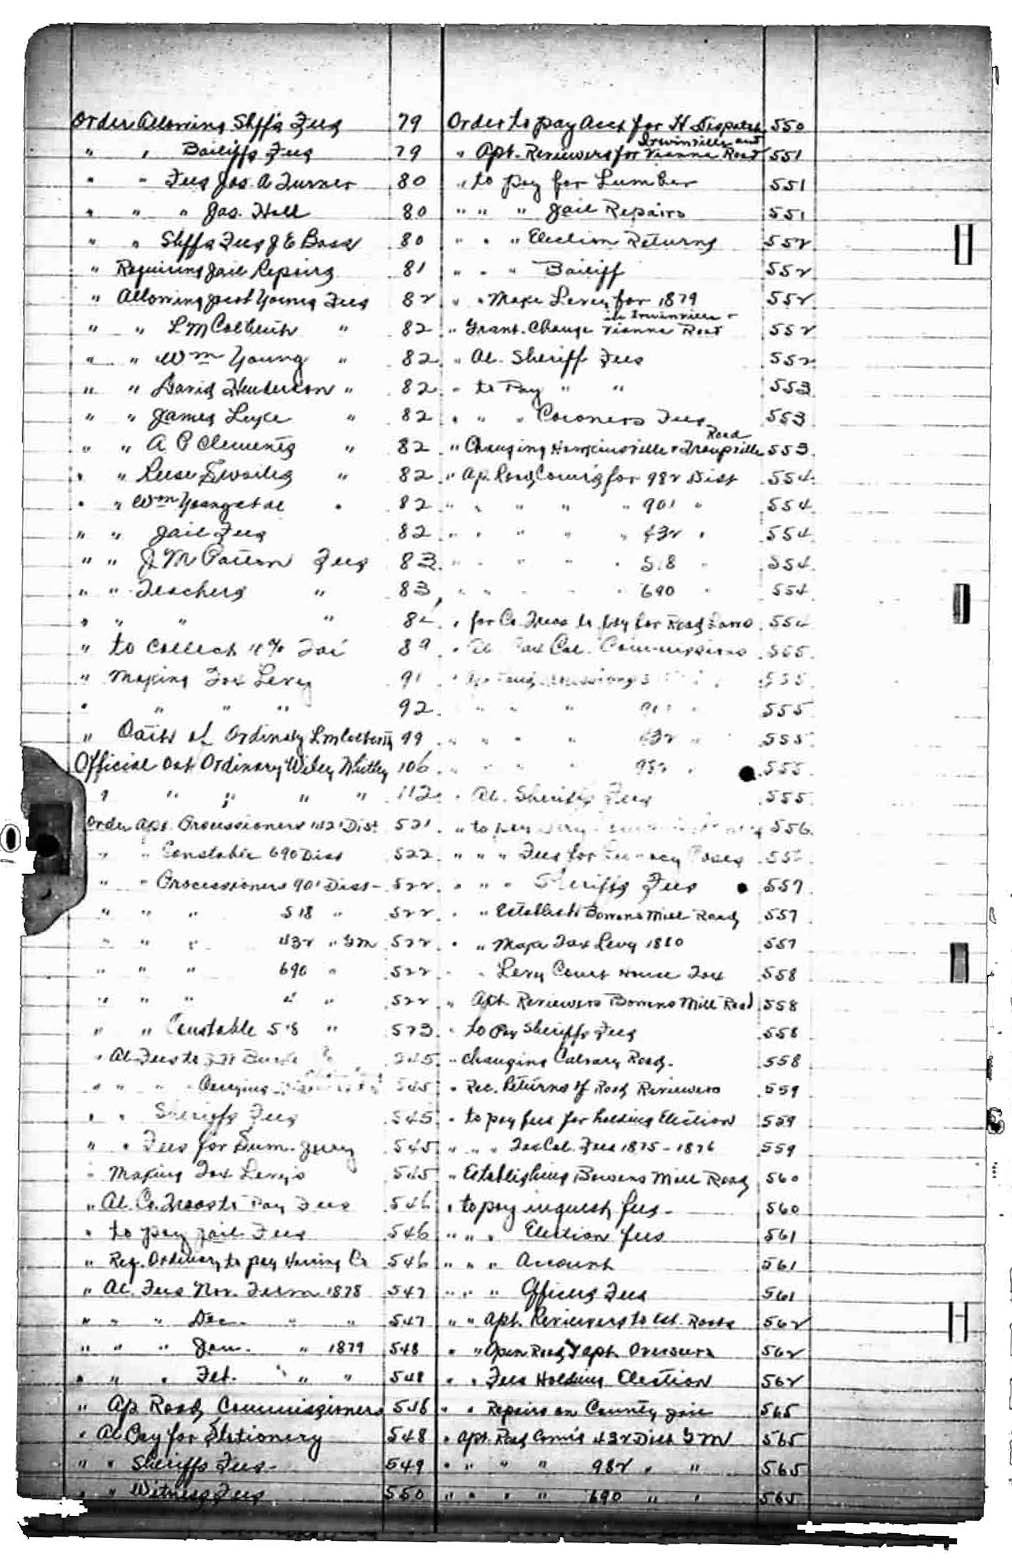 Order Allowing Shffs Fees 79
" " Bailiffs Fees 79
" " Fees Jas. A Turner 80
" " " Jas. Hall 80
" " Shffs Fees J E Bass 80
" Requiring Jail Repairs 81
" Allowing Jacob Young Fees 82
" " L M Colbeith " 82
" " Wm Young " 82
" " David Henderson " 82
" " James Luke " 82
" " A P Clements " 82
" " Reese Swailes " 82
" " Wm Young et al " 82
" " Jail Fees 82
" " J M Patton Fees 83
" " Teachers " 83
" " " "
" to Collect Tax 89
" Making Tax Levy 91
" " " " 92
" Oath of Ordinary 99
Official Oath Ordinary Wiley Whitley 106
" " " " " 112
Order Apt. Processioners 1421 Dist. 521
" " Constable 690 Dist 522
" " Processioners 901 Dist 522
" " " 518 " 522
" " " 432 " GM 522
" " " 690 " 522
" " " " " 522
" " Constable 518 " 523
" Al Fees to 545
" " " Carrying 545
" " Sheriffs Fees 545
" " Fees for Sum. Jury 545
" Making Tax Levys 545
" Al. Co. Treas to Pay Fees 546
" to pay jail Fees 546
" Req. Ordinary to pay Co 546
" Al. Fees Nov. Term 1878 547
" " " Dec. " " 547
" " " Jan. " 1879 548
" " " Feb. " " " 548
" Ap Road Commissioners 548
" Al Pay for Stationery 548
" " Sheriffs Fees 549
" " Witness Fees 550
Order to pay Acct for H Dispatch 550
" Apt. Reviewers for Irwinville and Vienna Road 551
" to pay for Lumber 551
" " " Jail Repairs 551
" " " Election Returns 552
" " " Bailiff 552
" " Make Levy for 1879 552
" Grant. Change in Irwinville & Vienna Road 552
" Al. Sheriff Fees 552
" to Pay " " 553
" " " Coroners Fees 553
" Changing Hawkinsville & Troupville Road 553
" Ap. Road Com's for 982 Dist 554
" " " " " 901 " 554
" " " " " 432 " 554
" " " " " 518 " 554
" " " " " 690 " 554
" for Co. Treas to pay for Road 554
" Al Tax Col. Commissions 555
" 555
" " " " 901 " 555
" " " " 432 " 555
" " " " 982 " 555
" Al. Sheriffs Fees 555
" to pay 556
" " " Fees for Lunacy Cases
" " " Sheriffs Fees 557
" " Establish Bowens Mill Road 557
" " Make Tax Levy 1880 557
" " Levy Court House Tax 558
" Apt. Reviewers Bowens Mill Road 558
" to Pay Sheriffs Fees 558
" Changing Calvary Road. 558
" Rec. Returns of Road Reviewers 559
" to pay fees for holding Election 559
" " " Tax Col. Fees 1875-1876 559
" Establishing Bowens Mill Road 560
" to pay inquest fees 560
" " " Election fees 561
" " " Account 561
" " " Officers Fees 561
" " Apt. Reviewers to Est. Roads 562
" " Open Road & apt. Overseers 562
" " Fees Holding Election 562
" " Repairs on County jail 565
" Apt. Road Com's 432 Dist G M 565
" " " " 982 " " 565
" " " " 690 " " 565